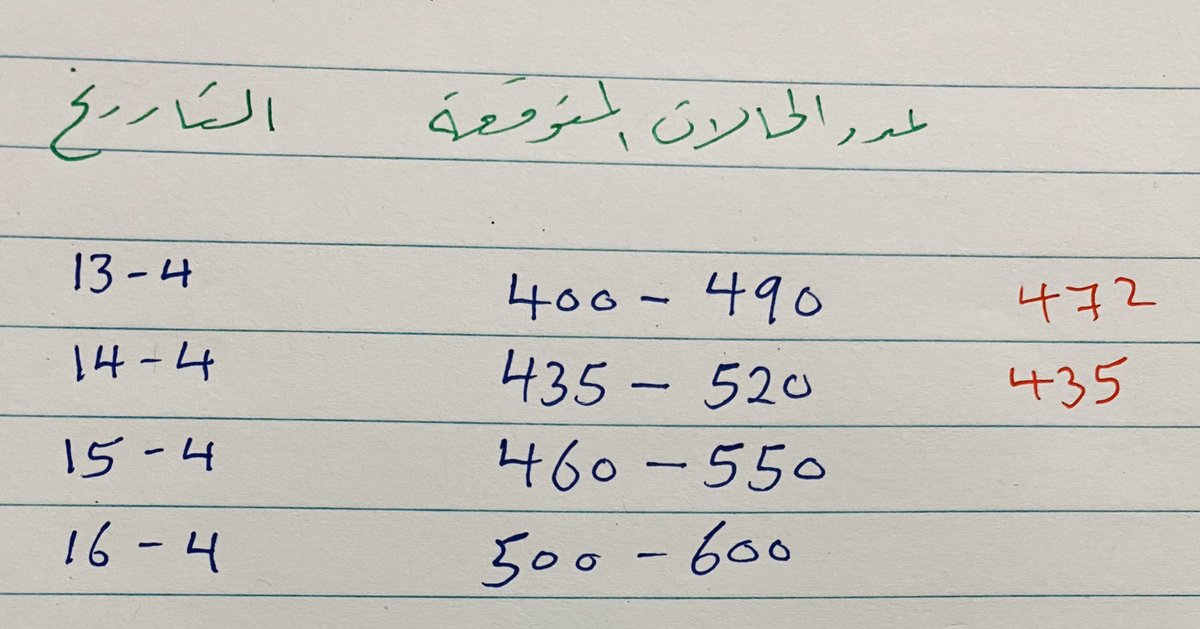 عدد الحالات المتوقعة التاريخ
13-4 400 - 490 472
14-4 435 - 520 435
15-4 460 - 550
16-4 500 - 600